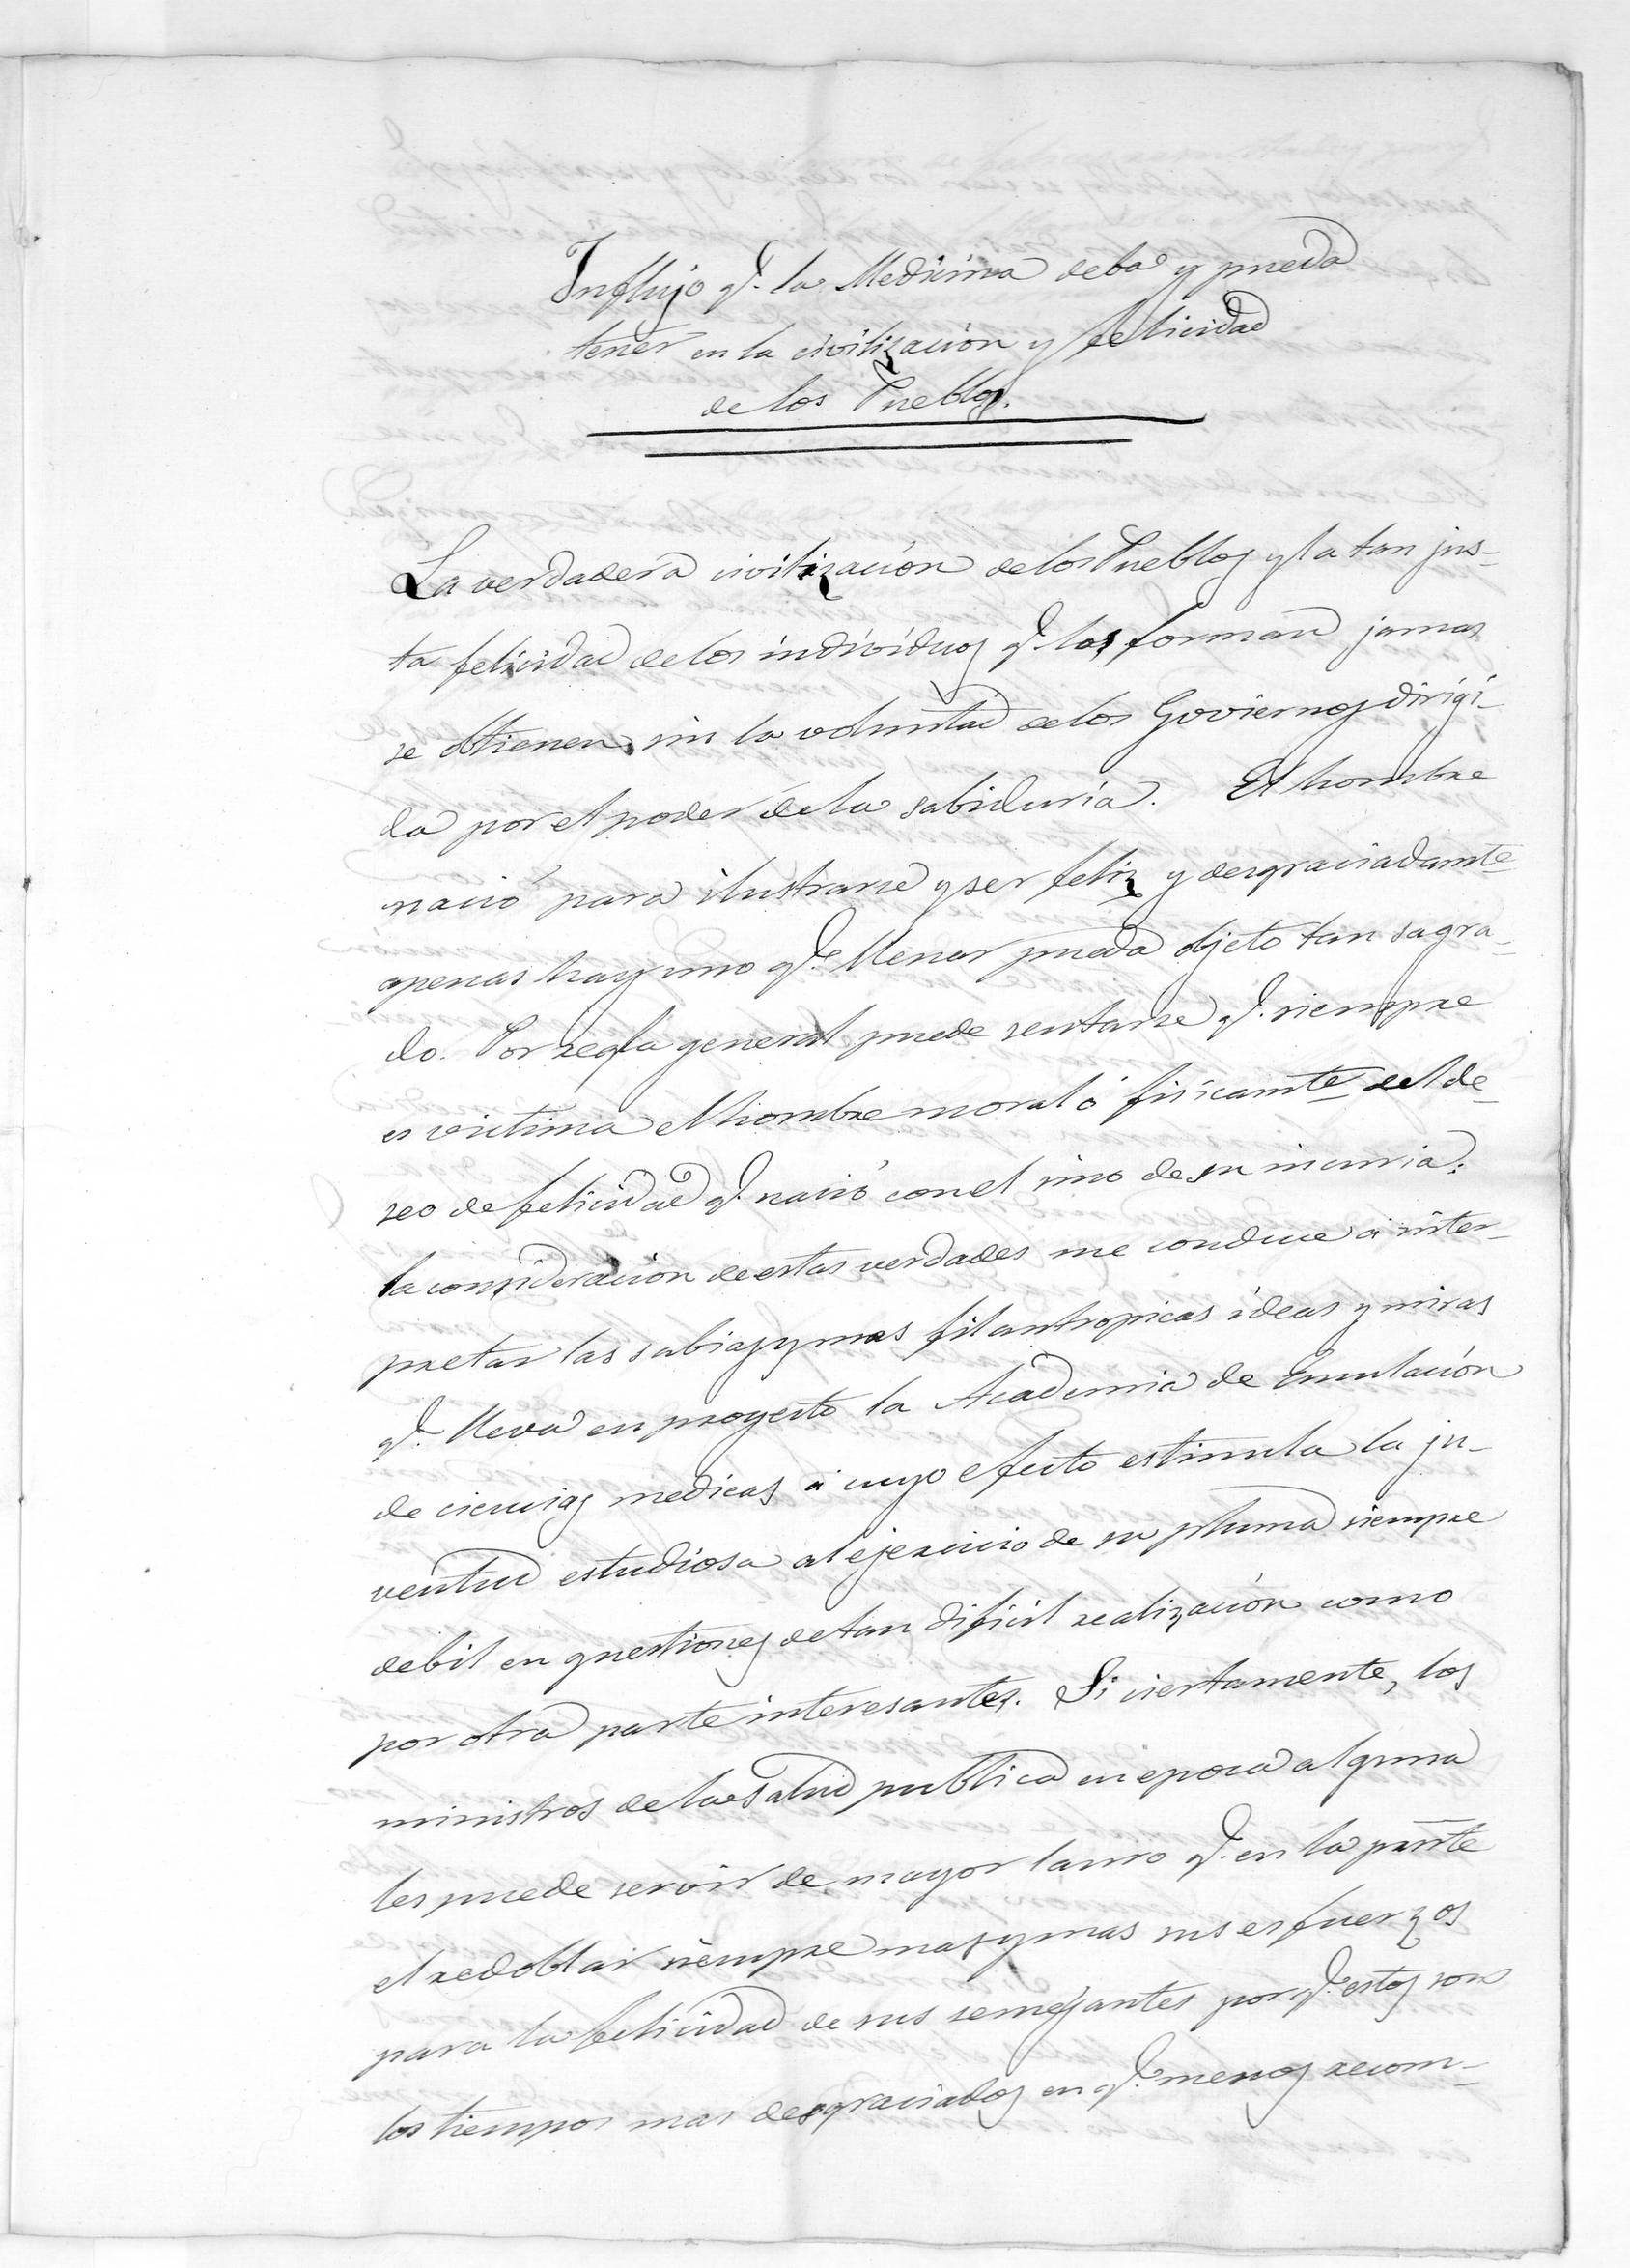 Influjo q.e la Medicina deba y pueda
tener en la civilización y felicidad
de los Pueblos.
La verdadera civilización de los Pueblos y la tan jus-
ta felicidad de los indivíduos q.e los forman jamas
se obtienen sin la voluntad de los Goviernos dirigi-
da por el poder de la sabiduría. El hombre
nació para ilustrarse y ser feliz y desgraciadamte
apenas hay uno q.e llenar pueda objeto tan sagra-
do. Por regla general puede sentarse q.e siempre
es victima el hombre moral ó fisicamte del de-
seo de felicidad q.e nació con el sino de su incuria:
la consideración de estas verdades me conduce á inter-
pretar las sabias y mas filantropicas ideas y miras
q.e lleva en proyecto la Academia de Emulación
de ciencias medicas á cuyo efecto estimula la ju-
ventud estudiosa al ejercicio de su pluma siempre
debil en questiones de tan dificil realización como
por otra parte interesantes. Si ciertamente, los
ministros de la salud publica en epoca alguna
les puede servir de mayor lauro q.e en la presnte
el redoblar siempre mas y mas sus esfuerzos
para la felicidad de sus semejantes porq.e estos son
los tiempos mas desgraciados en q.e menos recom-